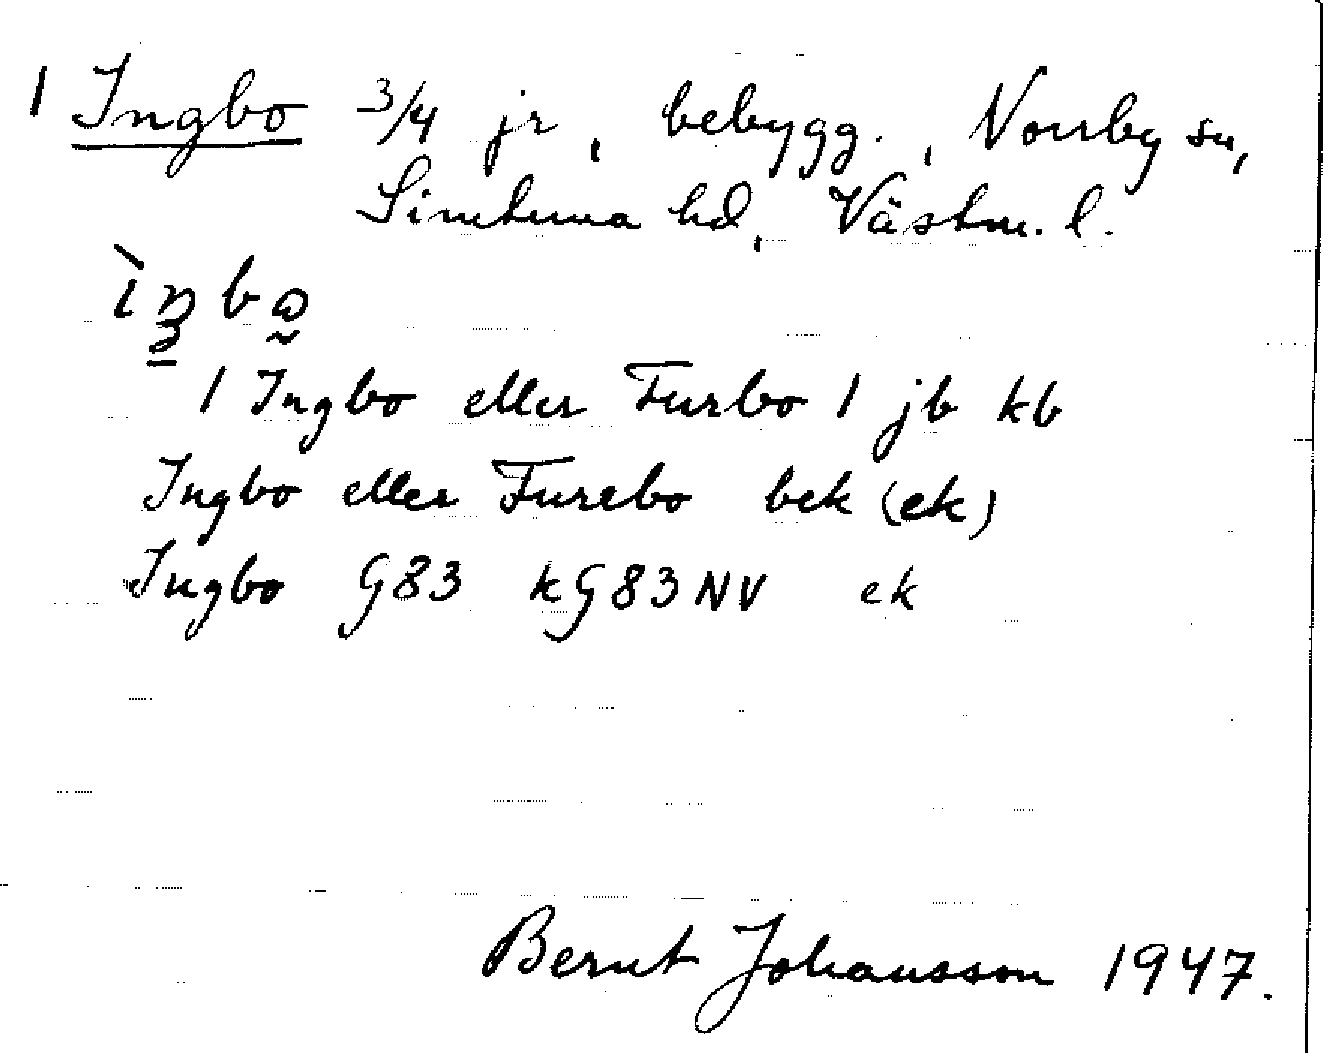 1 Ingbo 3/4 jr, bebygg., Norrby sn,
Simtuna hd, Västm. l.
ìŋbo
1 Ingbo eller Furbo 1 jb kb
Ingbo eller Furebo bek (ek)
Ingbo G83 kG83NV ek
Bernt Johansson 1947.